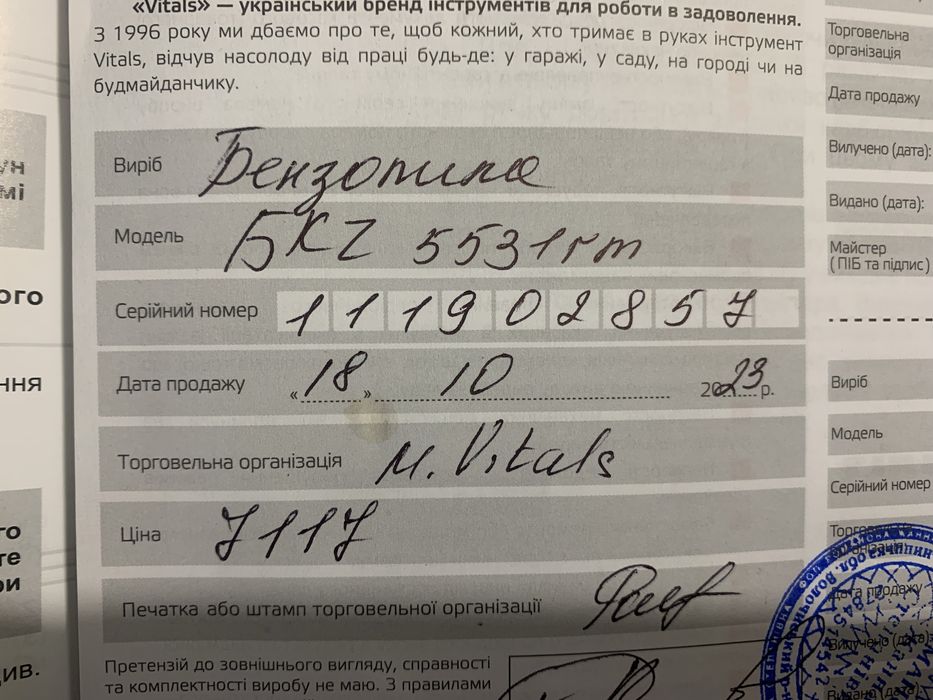 «Vitals» — український бренд інструментів для роботи в задоволення.
З 1996 року ми дбаємо про те, щоб кожний, хто тримає в руках інструмент
Vitals, відчув насолоду від праці будь-де: у гаражі, у саду, на городі чи на
будмайданчику.
Виріб Бензопила
Модель БКZ 5531rm
Серійний номер 111902857
Дата продажу «18» 10 2023 р.
Торговельна організація м. Vitals
Ціна 7117
Печатка або штамп торговельної організації
Претензій до зовнішнього вигляду, справності
та комплектності виробу не маю. З правилами
Торговельна
організація
Дата продажу
Вилучено (дата):
Видано (дата):
Майстер
(ПІБ та підпис)
Виріб
Модель
Серійний номер
Дата продажу
Вилучено (дата):
Видано (дата):